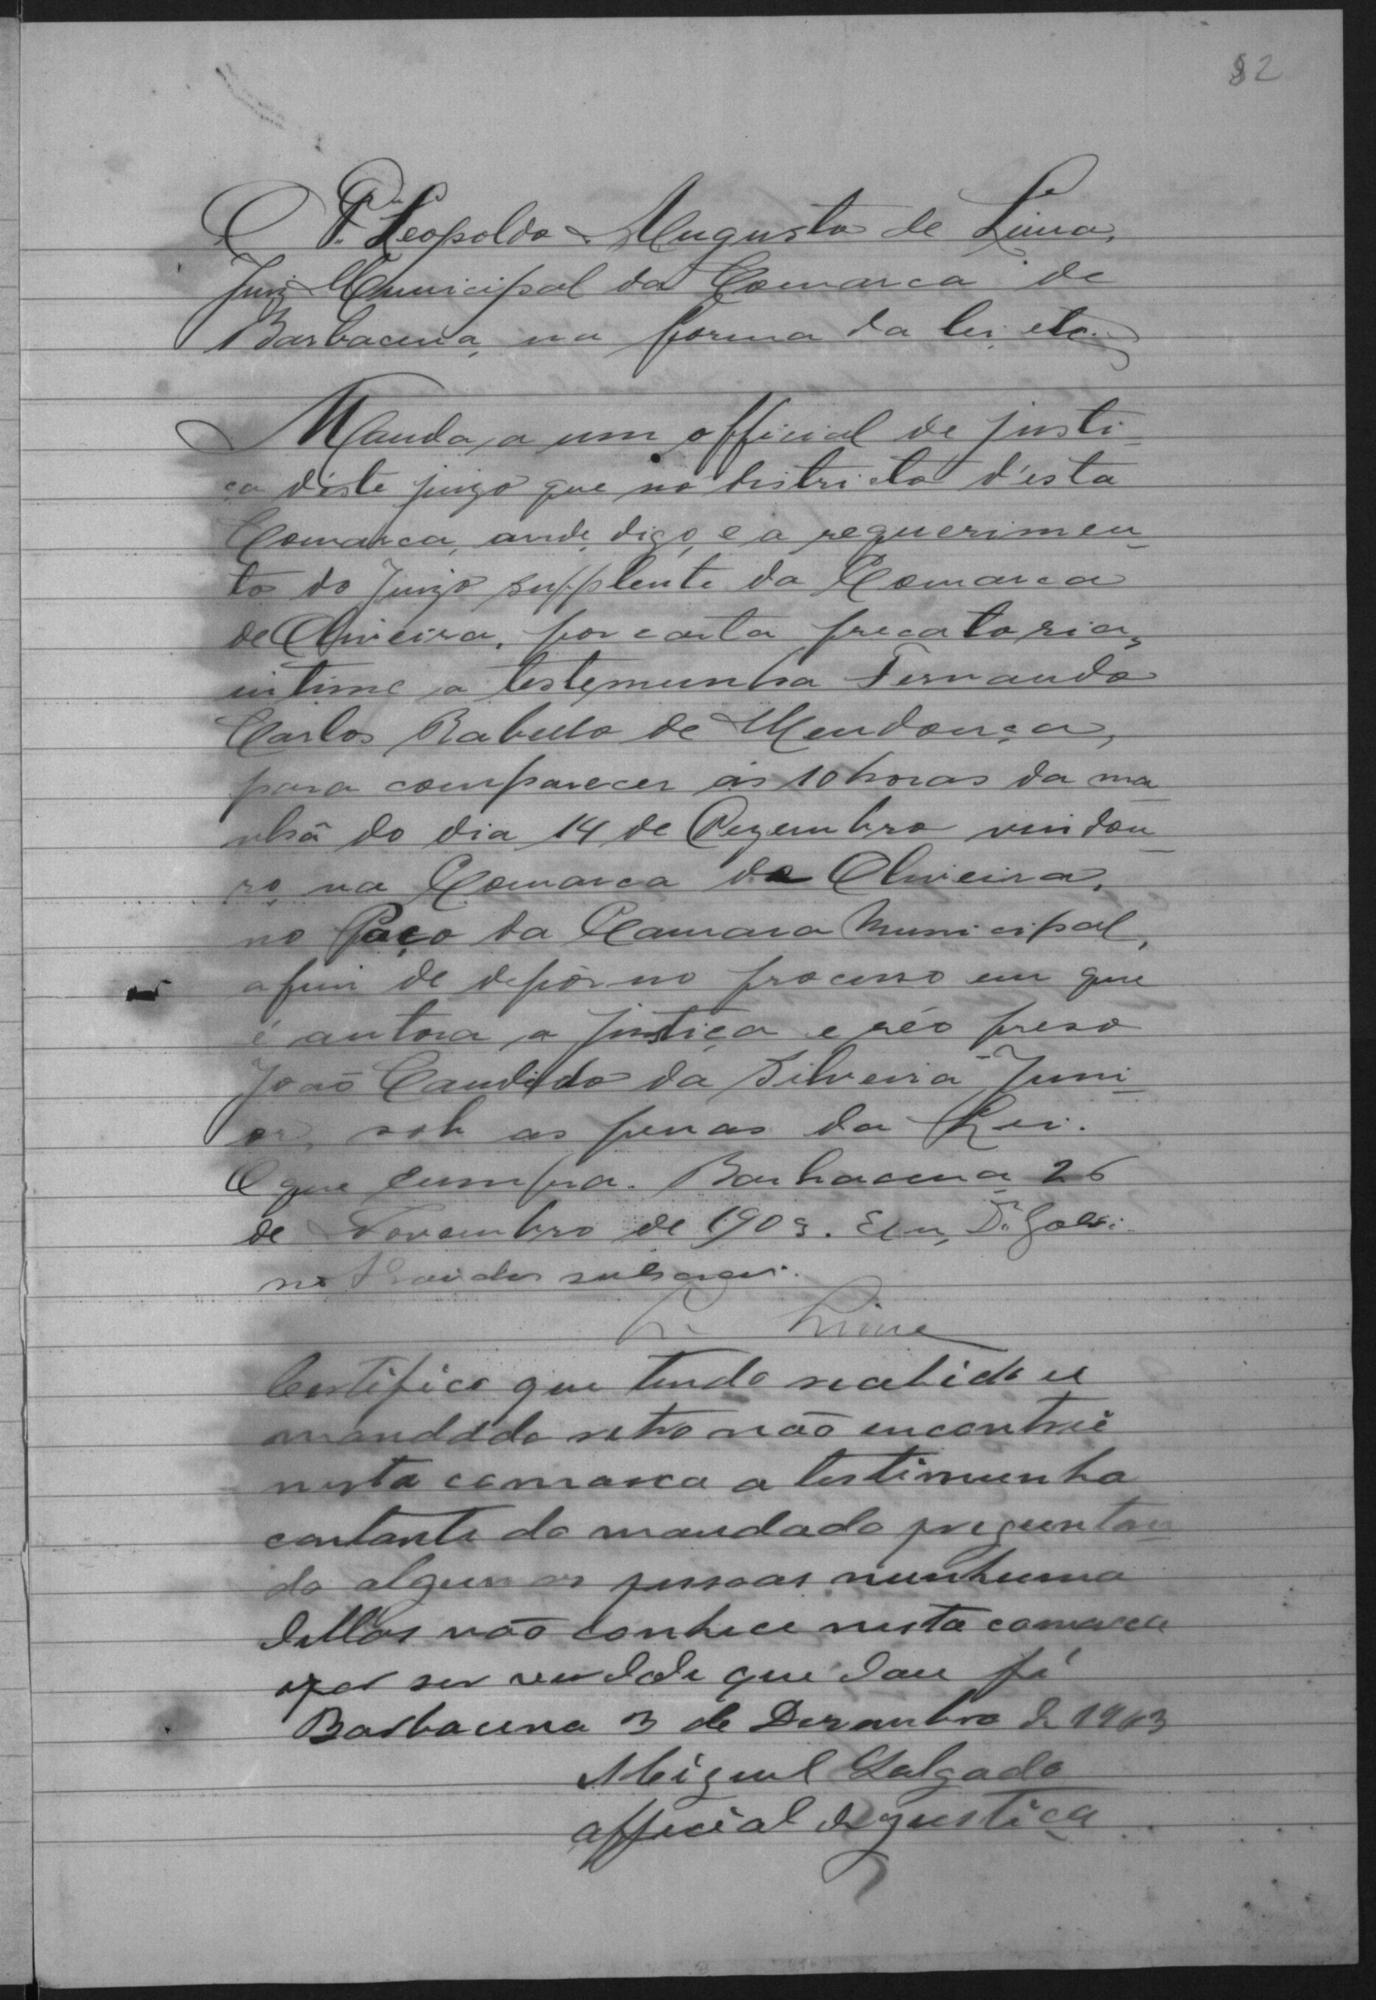 82
O Dr. Leopoldo Augusto de Lima,
Juiz Municipal da Comarca de
Barbacena, na forma da lei, etc.
Manda a um official de justi-
ça d'este juizo que no districto d'esta
Comarca, ande, digo, e a requerimen-
to do Juizo supplente da Comarca
de Oliveira, por carta precatoria,
intime a testemunha Fernando
Carlos Rabello de Mendonça,
para comparecer ás 10 horas da ma-
nhã do dia 14 de Dezembro vindou-
ro, na Comarca de Oliveira,
no Paço da Camara Municipal,
afim de depôr no processo em que
é autora a justiça e réo preso
João Candido da Silveira Juni-
or, sob as penas da Lei.
O que cumpra. Barbacena 26
de Novembro de 1903. Eu,
subscrevi.
L. Lima
Certifico que tendo recebido u
mandado retro não encontrei
nesta comarca a testimunha
contante do mandado preguntan
do algumas pessoas nunhuma
dellas não conhece nesta comarca
por ser verdade que dou fé
Barbacena 3 de Dezembro de 1903
Miguel Salgado
official de justiça